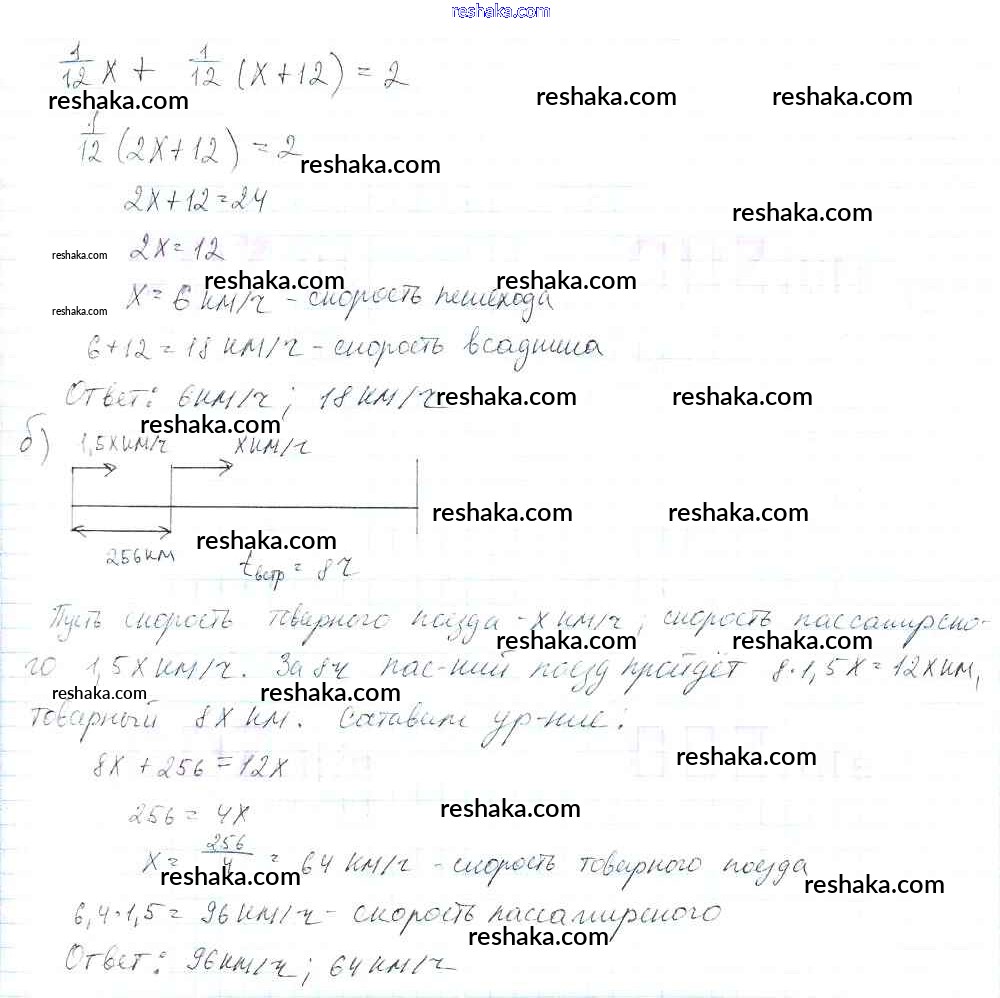 reshaka.com
1/12 x + 1/12 (x+12) = 2
reshaka.com reshaka.com reshaka.com
1/12 (2x+12) = 2
reshaka.com
2x+12=24
reshaka.com
reshaka.com 2x=12
reshaka.com reshaka.com
reshaka.com x= 6 км/ч - скорость пешехода
6+12=18 км/ч - скорость всадника
Ответ: 6км/ч; 18км/ч
reshaka.com reshaka.com
reshaka.com
б) 1,5x км/ч x км/ч
reshaka.com reshaka.com
reshaka.com
256 км tвстр = 8ч
Пусть скорость товарного поезда - x км/ч, скорость пассажирско-
reshaka.com reshaka.com
го 1,5x км/ч. За 8ч пас-кий поезд пройдёт 8·1,5x=12x км,
reshaka.com reshaka.com
товарный 8x км. Составим ур-ние:
reshaka.com
8x+256=12x
reshaka.com
256=4x
x= 256/4 = 64 км/ч - скорость товарного поезда
reshaka.com reshaka.com
6,4·1,5= 96км/ч - скорость пассажирского
reshaka.com
Ответ: 96км/ч; 64км/ч